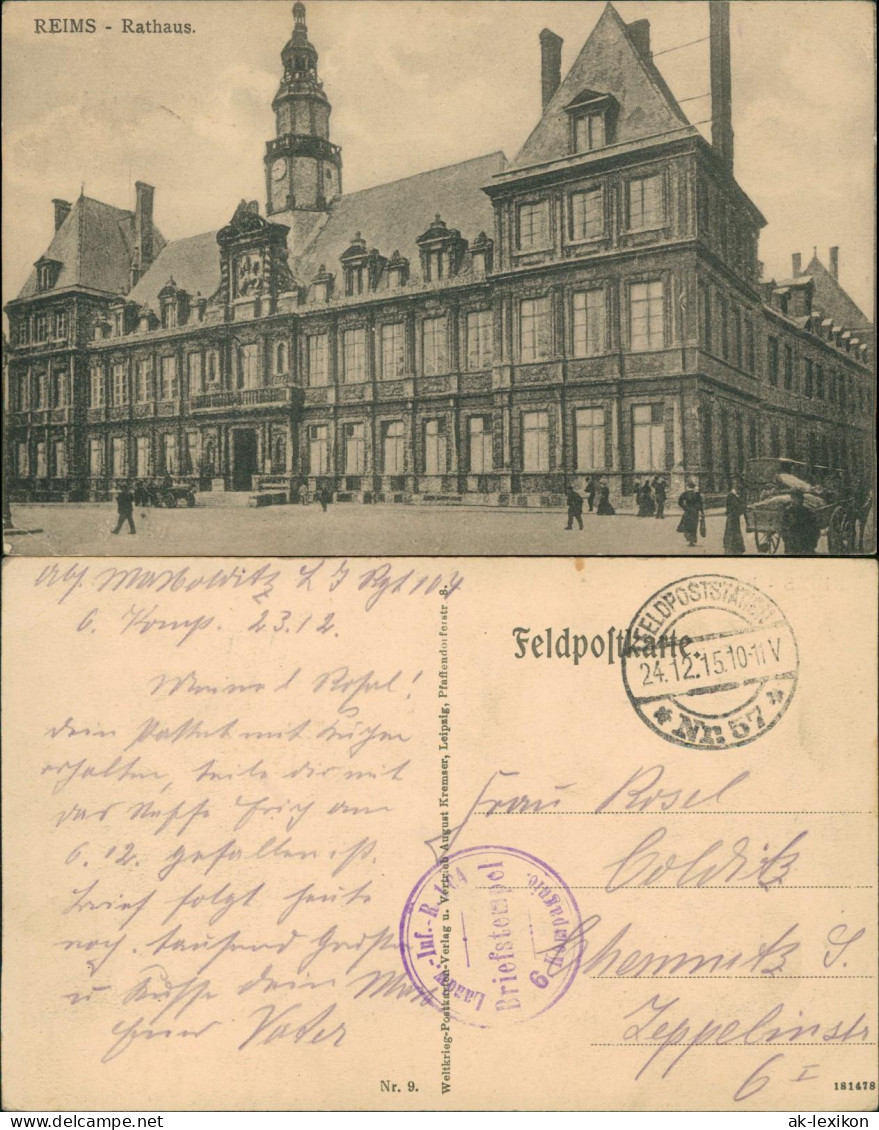 REIMS - Rathaus.
Abs. Max Colditz L I Rgt 104
6. Komp. 23.12.
Meine l Rosel!
dein Packet mit Kuchen
erhalten, teile dir mit
das Neffe Erich am
6.12. gefallen ist.
Brief folgt heute
noch. tausend Grüße
u Küsse dein Max
Euer Vater
Nr. 9.
Weltkrieg-Postkarten-Verlag u. Vertrieb August Kremser, Leipzig, Pfaffendorferstr 8.
Feldpostkarte.
FELDPOSTSTATION
24.12.15.10-11V
* Nr. 57 *
Frau Rosel
Colditz
Chemnitz S.
Zeppelinstr
6 I
Landw.-Inf.-R. 104
Briefstempel
6. Kompagnie.
181478
ak-lexikon